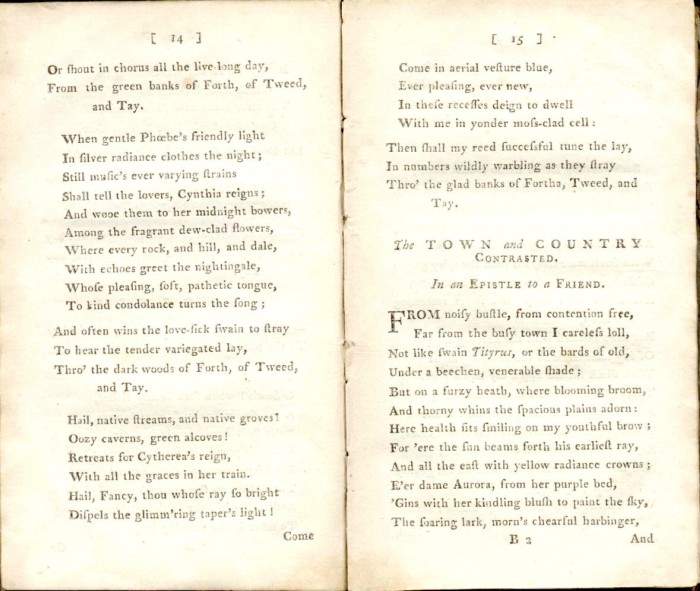 [ 14 ]
Or ſhout in chorus all the live-long day,
From the green banks of Forth, of Tweed,
and Tay.
When gentle Phœbe's friendly light
In ſilver radiance clothes the night;
Still muſic's ever varying ſtrains
Shall tell the lovers, Cynthia reigns;
And wooe them to her midnight bowers,
Among the fragrant dew-clad flowers,
Where every rock, and hill, and dale,
With echoes greet the nightingale,
Whoſe pleaſing, ſoft, pathetic tongue,
To kind condolance turns the ſong;
And often wins the love-ſick ſwain to ſtray
To hear the tender variegated lay,
Thro' the dark woods of Forth, of Tweed,
and Tay.
Hail, native ſtreams, and native groves!
Oozy caverns, green alcoves!
Retreats for Cytherea's reign,
With all the graces in her train.
Hail, Fancy, thou whoſe ray ſo bright
Diſpels the glimm'ring taper's light!
Come
[ 15 ]
Come in aerial veſture blue,
Ever pleaſing, ever new,
In theſe receſſes deign to dwell
With me in yonder moſs-clad cell:
Then ſhall my reed ſucceſsful tune the lay,
In numbers wildly warbling as they ſtray
Thro' the glad banks of Fortha, Tweed, and
Tay.
The TOWN and COUNTRY
CONTRASTED.
In an EPISTLE to a FRIEND.
FROM noiſy buſtle, from contention free,
Far from the buſy town I careleſs loll,
Not like ſwain Tityrus, or the bards of old,
Under a beechen, venerable ſhade;
But on a furzy heath, where blooming broom,
And thorny whins the ſpacious plains adorn:
Here health ſits ſmiling on my youthful brow;
For 'ere the ſun beams forth his earlieſt ray,
And all the eaſt with yellow radiance crowns;
E'er dame Aurora, from her purple bed,
'Gins with her kindling bluſh to paint the ſky,
The ſoaring lark, morn's chearful harbinger,
B 2 And